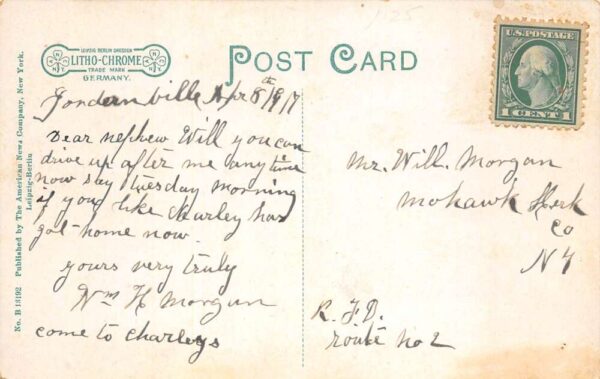 LEIPZIG BERLIN DRESDEN
LITHO-CHROME
TRADE MARK
GERMANY.
N.Y.
N.Y.
POST CARD
U.S. POSTAGE
1 CENT 1
No. B 13192 Published by The American News Company, New York.
Leipzig-Berlin
Jordanville Apr 8th 1917
Dear nephew Will you can
drive up after me any time
now say tuesday morning
if you like Hurley has
got home now
yours very truly
Wm H Morgan
come to Charleys
Mr. Will. Morgan
Mohawk Herk
Co
N Y
R. F. D.
route no 2